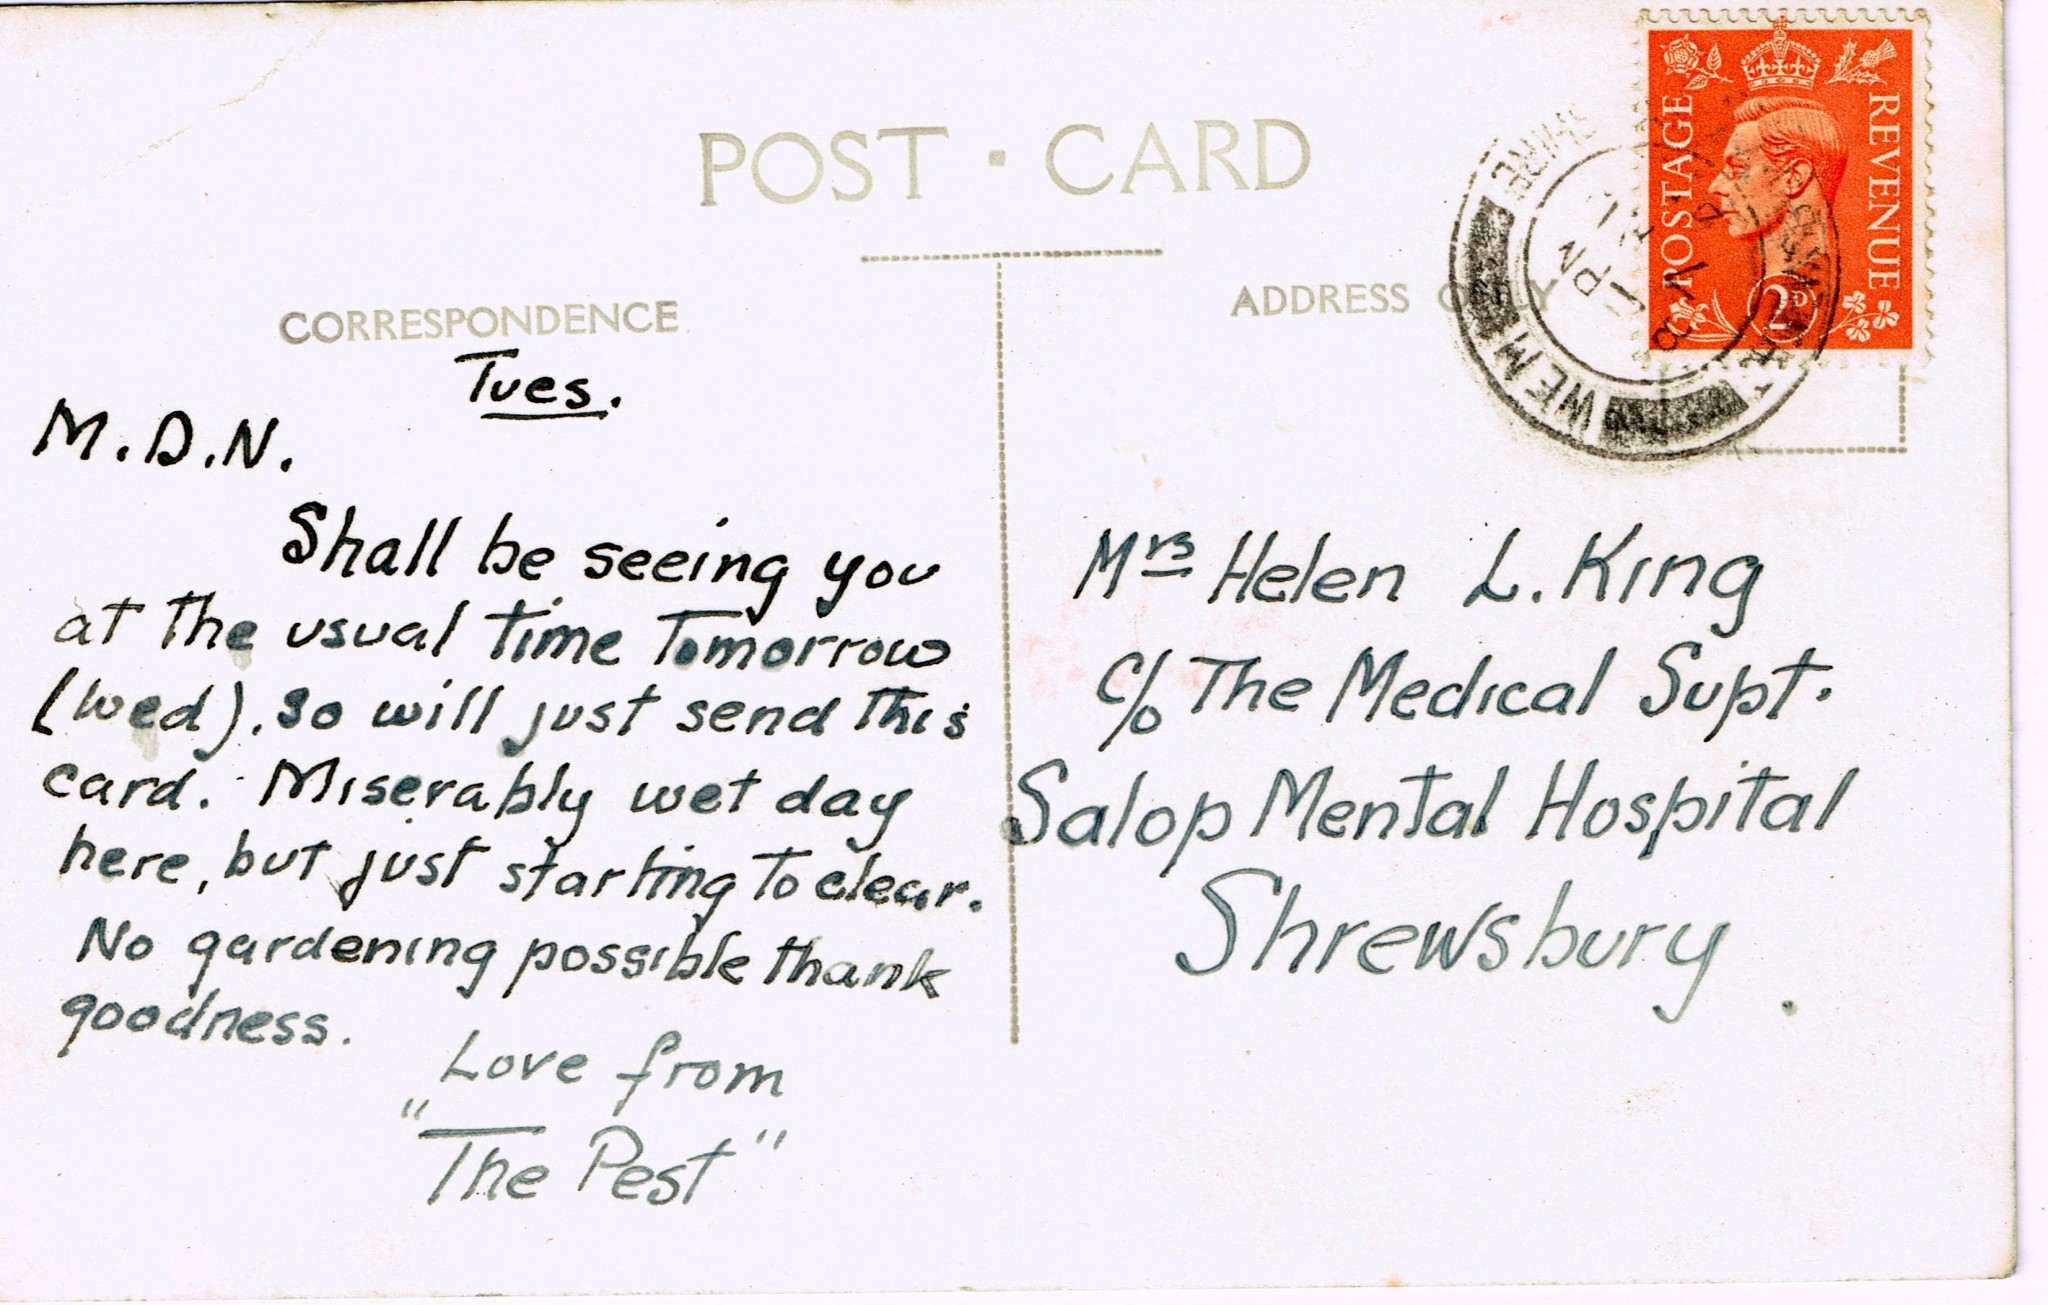 POST · CARD
CORRESPONDENCE
ADDRESS ONLY
POSTAGE
REVENUE
2D
WEM
SHREWSBURY
SHIRE
PM
Tues.
M.D.N.
Shall be seeing you
at the usual time Tomorrow
(Wed). So will just send this
card. Miserably wet day
here, but just starting to clear.
No gardening possible thank
goodness.
Love from
"The Pest"
Mrs Helen L. King
c/o The Medical Supt.
Salop Mental Hospital
Shrewsbury